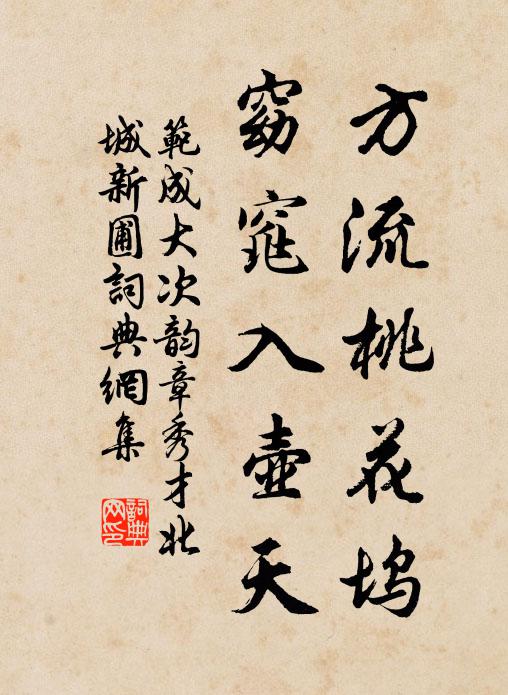 方流桃花坞
窈窕入壺天
範成大次韵章秀才北
城新圃詞典網集
詞典網印